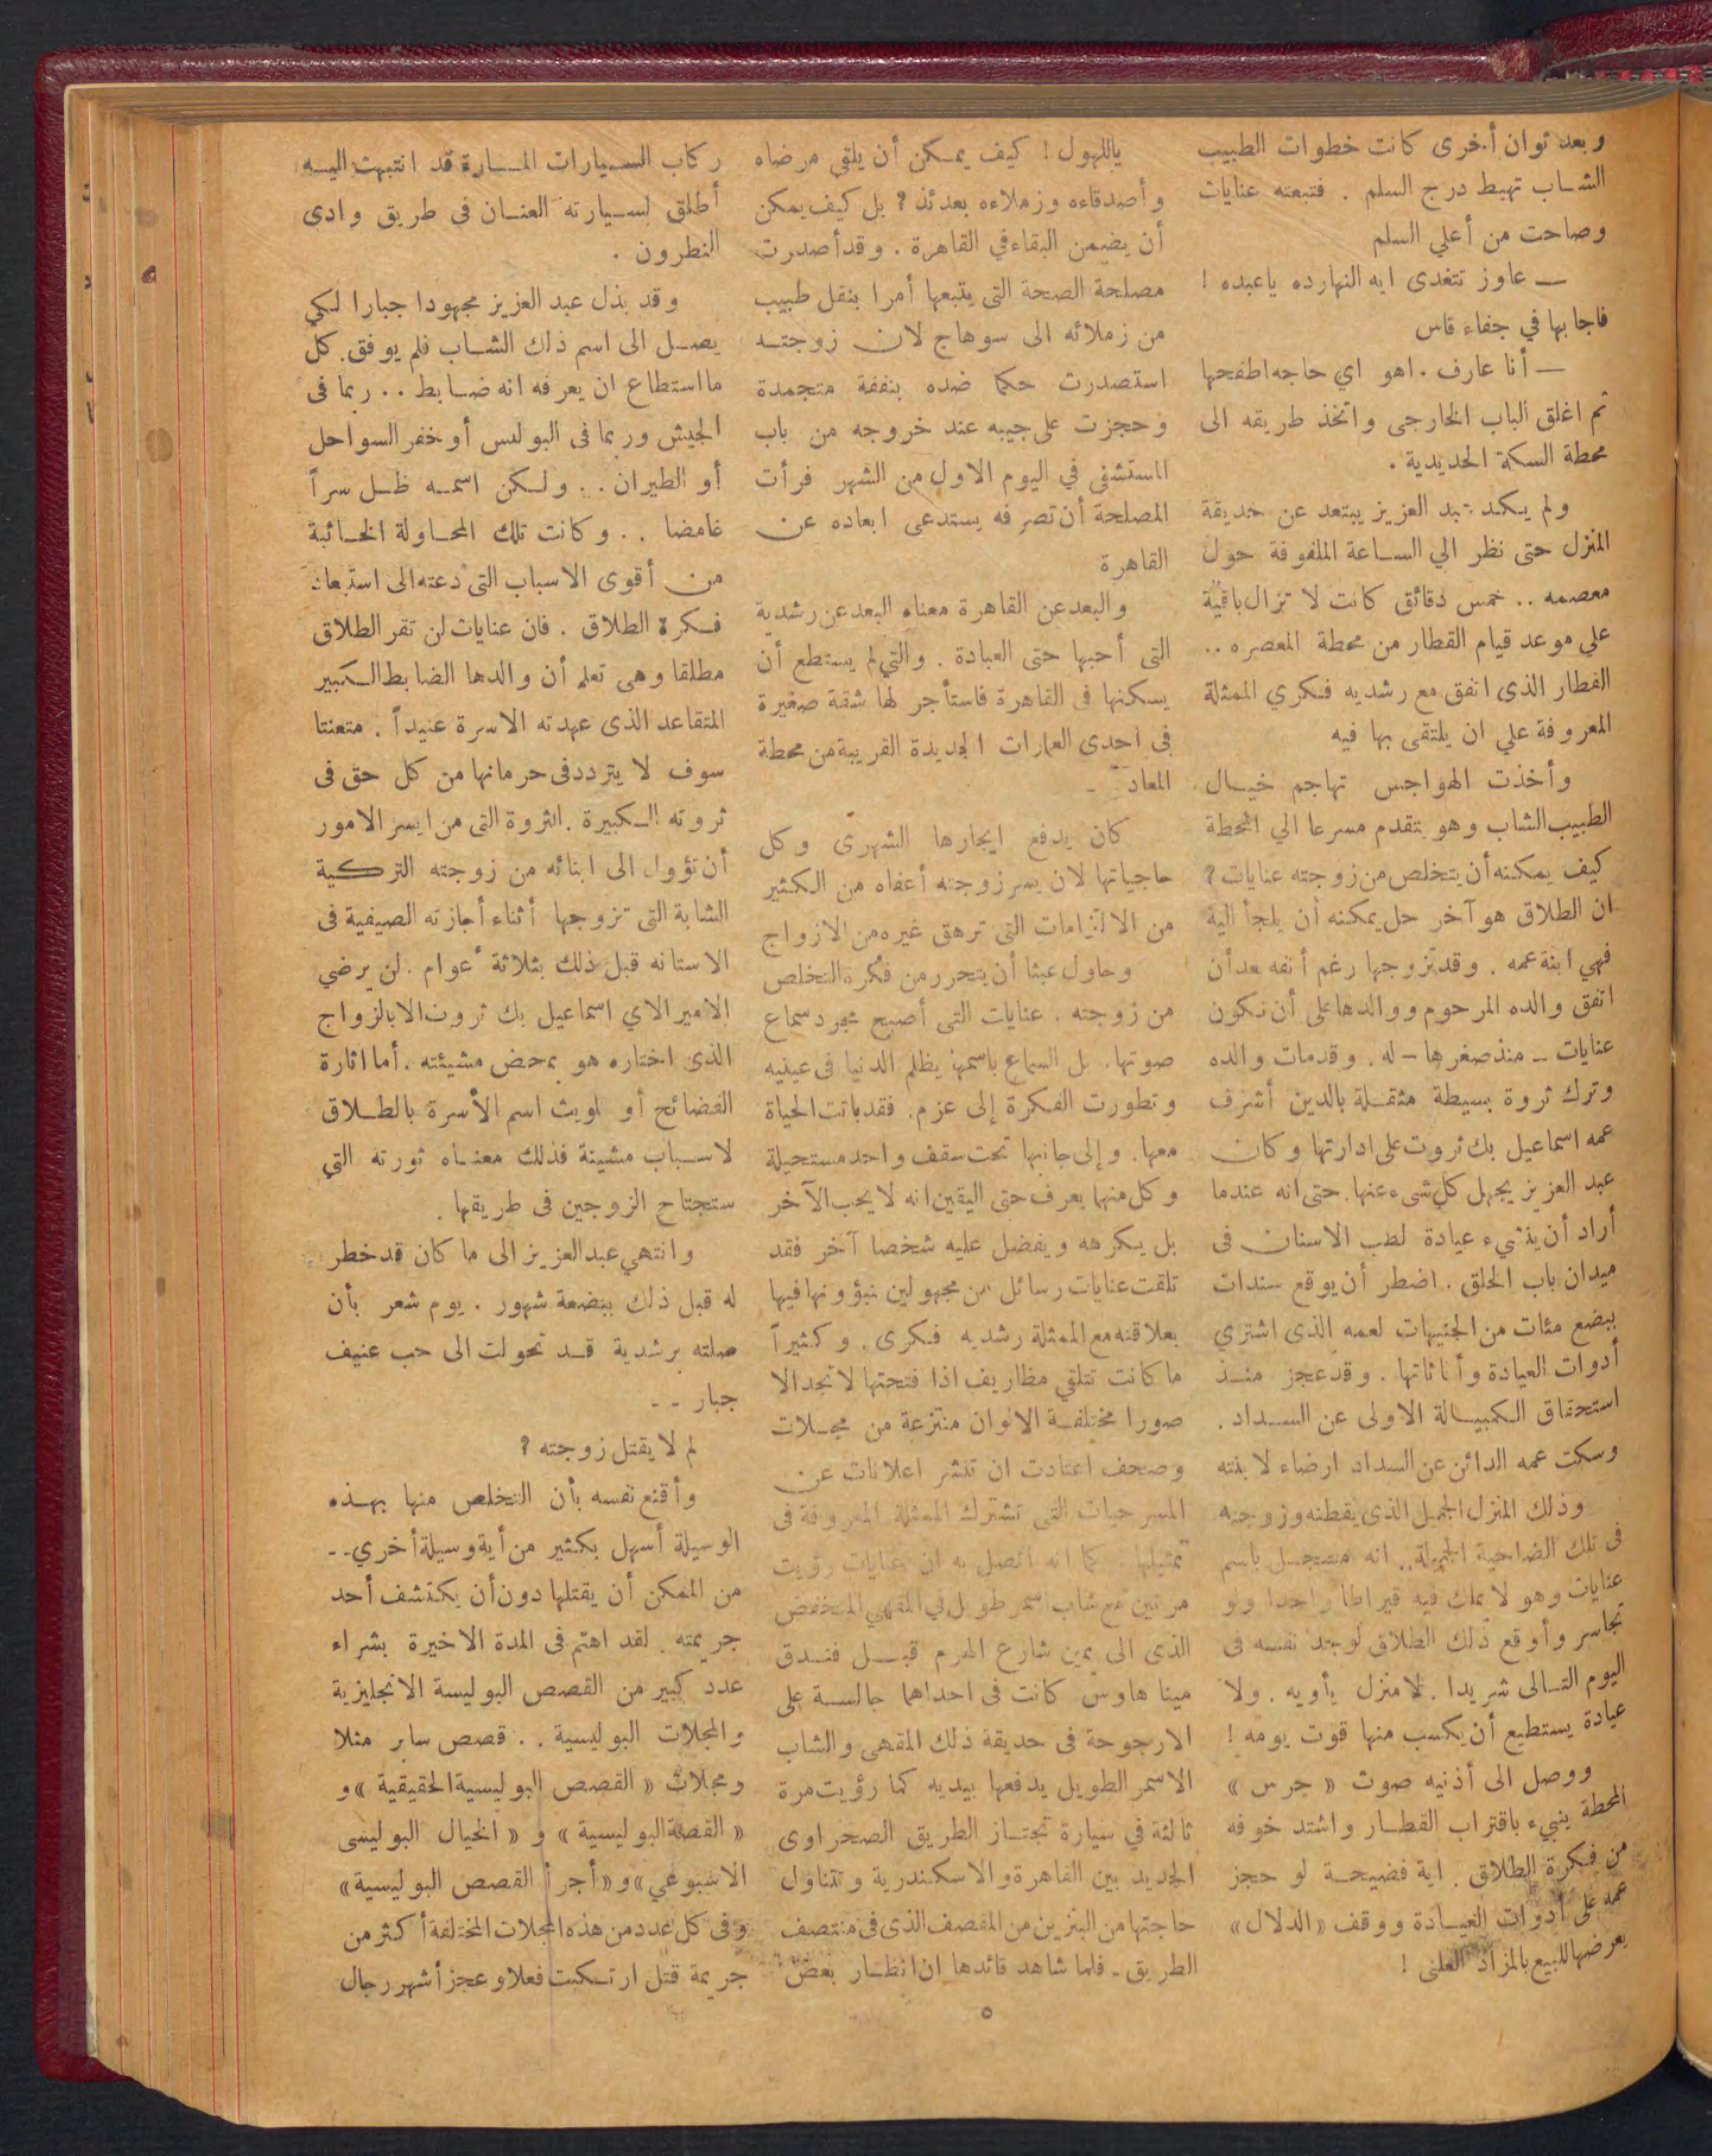 وبعد ثوان أخرى كانت خطوات الطبيب
الشاب تهبط درج السلم . فتبعته عنايات
وصاحت من أعلي السلم
— عاوز تتغدى ايه النهارده ياعبده !
فاجابها في جفاء قاس
— أنا عارف . اهو اي حاجه اطفحها
ثم اغلق الباب الخارجى واتخذ طريقه الى
محطة السكة الحديدية .
ولم يكد عبد العزيز يبتعد عن حديقة
المنزل حتى نظر الي الساعة الملفوفة حول
معصمه .. خمس دقائق كانت لا تزال باقية
علي موعد قيام القطار من محطة المعصره ..
القطار الذى اتفق مع رشديه فكري الممثلة
المعروفة علي ان يلتقى بها فيه
وأخذت الهواجس تهاجم خيال
الطبيب الشاب وهو يتقدم مسرعا الي المحطة
كيف يمكنه أن يتخلص من زوجته عنايات ؟
ان الطلاق هو آخر حل يمكنه أن يلجأ اليه
فهي ابنة عمه . وقد تزوجها رغم أنفه بعد أن
اتفق والده المرحوم ووالدها على أن تكون
عنايات - منذ صغرها - له . وقد مات والده
وترك ثروة بسيطة مثقلة بالدين أشرف
عمه اسماعيل بك ثروت على ادارتها وكان
عبد العزيز يجهل كل شىء عنها . حتى انه عندما
أراد أن ينشيء عيادة لطب الاسنان فى
ميدان باب الخلق . اضطر أن يوقع سندات
ببضع مئات من الجنيهات لعمه الذى اشتري
أدوات العيادة وأثاثاتها . وقد عجز منذ
استحقاق الكمبيالة الاولى عن السداد .
وسكت عمه الدائن عن السداد ارضاء لابنته
وذلك المنزل الجميل الذى يقطنه وزوجته
فى تلك الضاحية الجميلة .. انه مسجل باسم
عنايات وهو لا يملك فيه قيراطا واحدا ولو
تجاسر وأوقع ذلك الطلاق لوجد نفسه فى
اليوم التالى شريدا . لا منزل يأويه . ولا
عيادة يستطيع أن يكسب منها قوت يومه !
ووصل الى أذنيه صوت « جرس »
المحطة ينبيء باقتراب القطار واشتد خوفه
من فكرة الطلاق . اية فضيحة لو حجز
عمه على أدوات العيادة ووقف « الدلال »
يعرضها للبيع بالمزاد العلنى !
ياللهول ! كيف يمكن أن يلقي مرضاه
وأصدقاءه وزملاءه بعدئذ ؟ بل كيف يمكن
أن يضمن البقاء في القاهرة . وقد أصدرت
مصلحة الصحة التى يتبعها أمرا بنقل طبيب
من زملائه الى سوهاج لان زوجته
استصدرت حكما ضده بنفقة متجمدة
وحجزت على جيبه عند خروجه من باب
المستشفى في اليوم الاول من الشهر فرأت
المصلحة أن تصرفه يستدعى ابعاده عن
القاهرة
والبعد عن القاهرة معناه البعد عن رشدية
التى أحبها حتى العبادة . والتي لم يستطع أن
يسكنها فى القاهرة فاستأجر لها شقة صغيرة
فى احدى العمارات الجديدة القريبة من محطة
المعاد
كان يدفع ايجارها الشهرى وكل
حاجياتها لان يسر زوجته أعفاه من الكثير
من الالتزامات التى ترهق غيره من الازواج
وحاول عبثا أن يتحرر من فكرة التخلص
من زوجته . عنايات التى أصبح مجرد سماع
صوتها . بل السماع باسمها يظلم الدنيا فى عينيه
وتطورت الفكرة إلى عزم . فقد باتت الحياة
معها . وإلى جانبها تحت سقف واحد مستحيلة
وكل منهما يعرف حتى اليقين انه لا يحب الآخر
بل يكرهه ويفضل عليه شخصا آخر فقد
تلقت عنايات رسائل من مجهولين نبؤونها فيها
بعلاقته مع الممثلة رشديه فكرى . وكثيراً
ما كانت تتلقي مظاريف اذا فتحتها لا تجد الا
صورا مختلفة الالوان منتزعة من مجلات
وصحف اعتادت ان تنشر اعلانات عن
المسرحيات التى تشترك الممثلة المعروفة فى
تمثيلها . كما انه اتصل به ان عنايات رؤيت
مرتين مع شاب اسمر طويل في المقهي المنخفض
الذى الى يمين شارع الهرم قبل فندق
مينا هاوس كانت فى احداهما جالسة على
الارجوحة فى حديقة ذلك المقهى والشاب
الاسمر الطويل يدفعها بيديه كما رؤيت مرة
ثالثة في سيارة تجتاز الطريق الصحراوى
الجديد بين القاهرة والاسكندرية وتتناول
حاجتها من البنزين من المقصف الذى فى منتصف
الطريق - فلما شاهد قائدها ان انظار بعض
ركاب السيارات المارة قد انتبهت اليه
أطلق لسيارته العنان فى طريق وادى
النطرون .
وقد بذل عبد العزيز مجهودا جبارا لكي
يصل الى اسم ذلك الشاب فلم يوفق . كل
ما استطاع ان يعرفه انه ضابط .. ربما فى
الجيش وربما فى البوليس أو خفر السواحل
أو الطيران .. ولكن اسمه ظل سراً
غامضا .. وكانت تلك المحاولة الخائبة
من أقوى الاسباب التى دعته الى استبعاد
فكرة الطلاق . فان عنايات لن تقر الطلاق
مطلقا وهى تعلم أن والدها الضابط الكبير
المتقاعد الذى عهدته الاسرة عنيداً . متعنتا
سوف لا يتردد فى حرمانها من كل حق فى
ثروته الكبيرة . الثروة التى من ايسر الامور
أن تؤول الى ابنائه من زوجته التركية
الشابة التى تزوجها أثناء أجازته الصيفية فى
الاستانه قبل ذلك بثلاثة أعوام . لن يرضي
الاميرالاي اسماعيل بك ثروت الا بالزواج
الذى اختاره هو بمحض مشيئته . أما اثارة
الفضائح أو لويث اسم الأسرة بالطلاق
لاسباب مشينة فذلك معناه ثورته التي
ستجتاح الزوجين فى طريقها .
وانتهي عبد العزيز الى ما كان قد خطر
له قبل ذلك ببضعة شهور . يوم شعر بأن
صلته برشدية قد تحولت الى حب عنيف
جبار - -
لم لا يقتل زوجته ؟
وأقنع نفسه بأن التخلص منها بهذه
الوسيلة أسهل بكثير من أية وسيلة أخري - -
من الممكن أن يقتلها دون أن يكتشف أحد
جريمته . لقد اهتم فى المدة الاخيرة بشراء
عدد كبير من القصص البوليسة الانجليزية
والمجلات البوليسية .. قصص سابر مثلا
ومجلات « القصص البوليسية الحقيقية » و
« القصة البوليسية » و « الخيال البوليسى
الاسبوعي » و « أجرأ القصص البوليسية »
وفى كل عدد من هذه المجلات المختلفة أكثر من
جريمة قتل ارتكبت فعلا وعجز أشهر رجال
٥